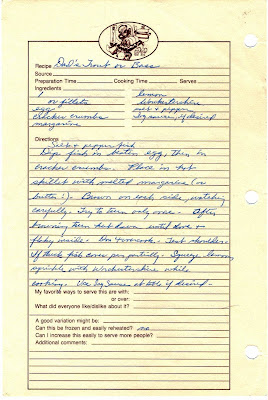 Recipe Dad's Trout or Bass
Source
Preparation Time Cooking Time Serves
Ingredients
1 lemon
or fillets Worchestershire
egg salt & pepper
cracker crumbs Soy sauce, if desired
margarine
Directions
Salt & pepper fish
Dip fish in beaten egg. Then in
cracker crumbs. Place in hot
skillet with melted margarine (or
butter). Brown on each side, watching
carefully. Try to turn only once. After
browning turn heat down until done &
flaky inside. Don't overcook. Test shoulders.
If thick fish cover pan partially. Squeeze lemon,
sprinkle with Worchestershire while
cooking. Use Soy Sauce at table if desired.
My favorite ways to serve this are with:
or over:
What did everyone like/dislike about it?
A good variation might be:
Can this be frozen and easily reheated? no
Can I increase this easily to serve more people?
Additional comments: